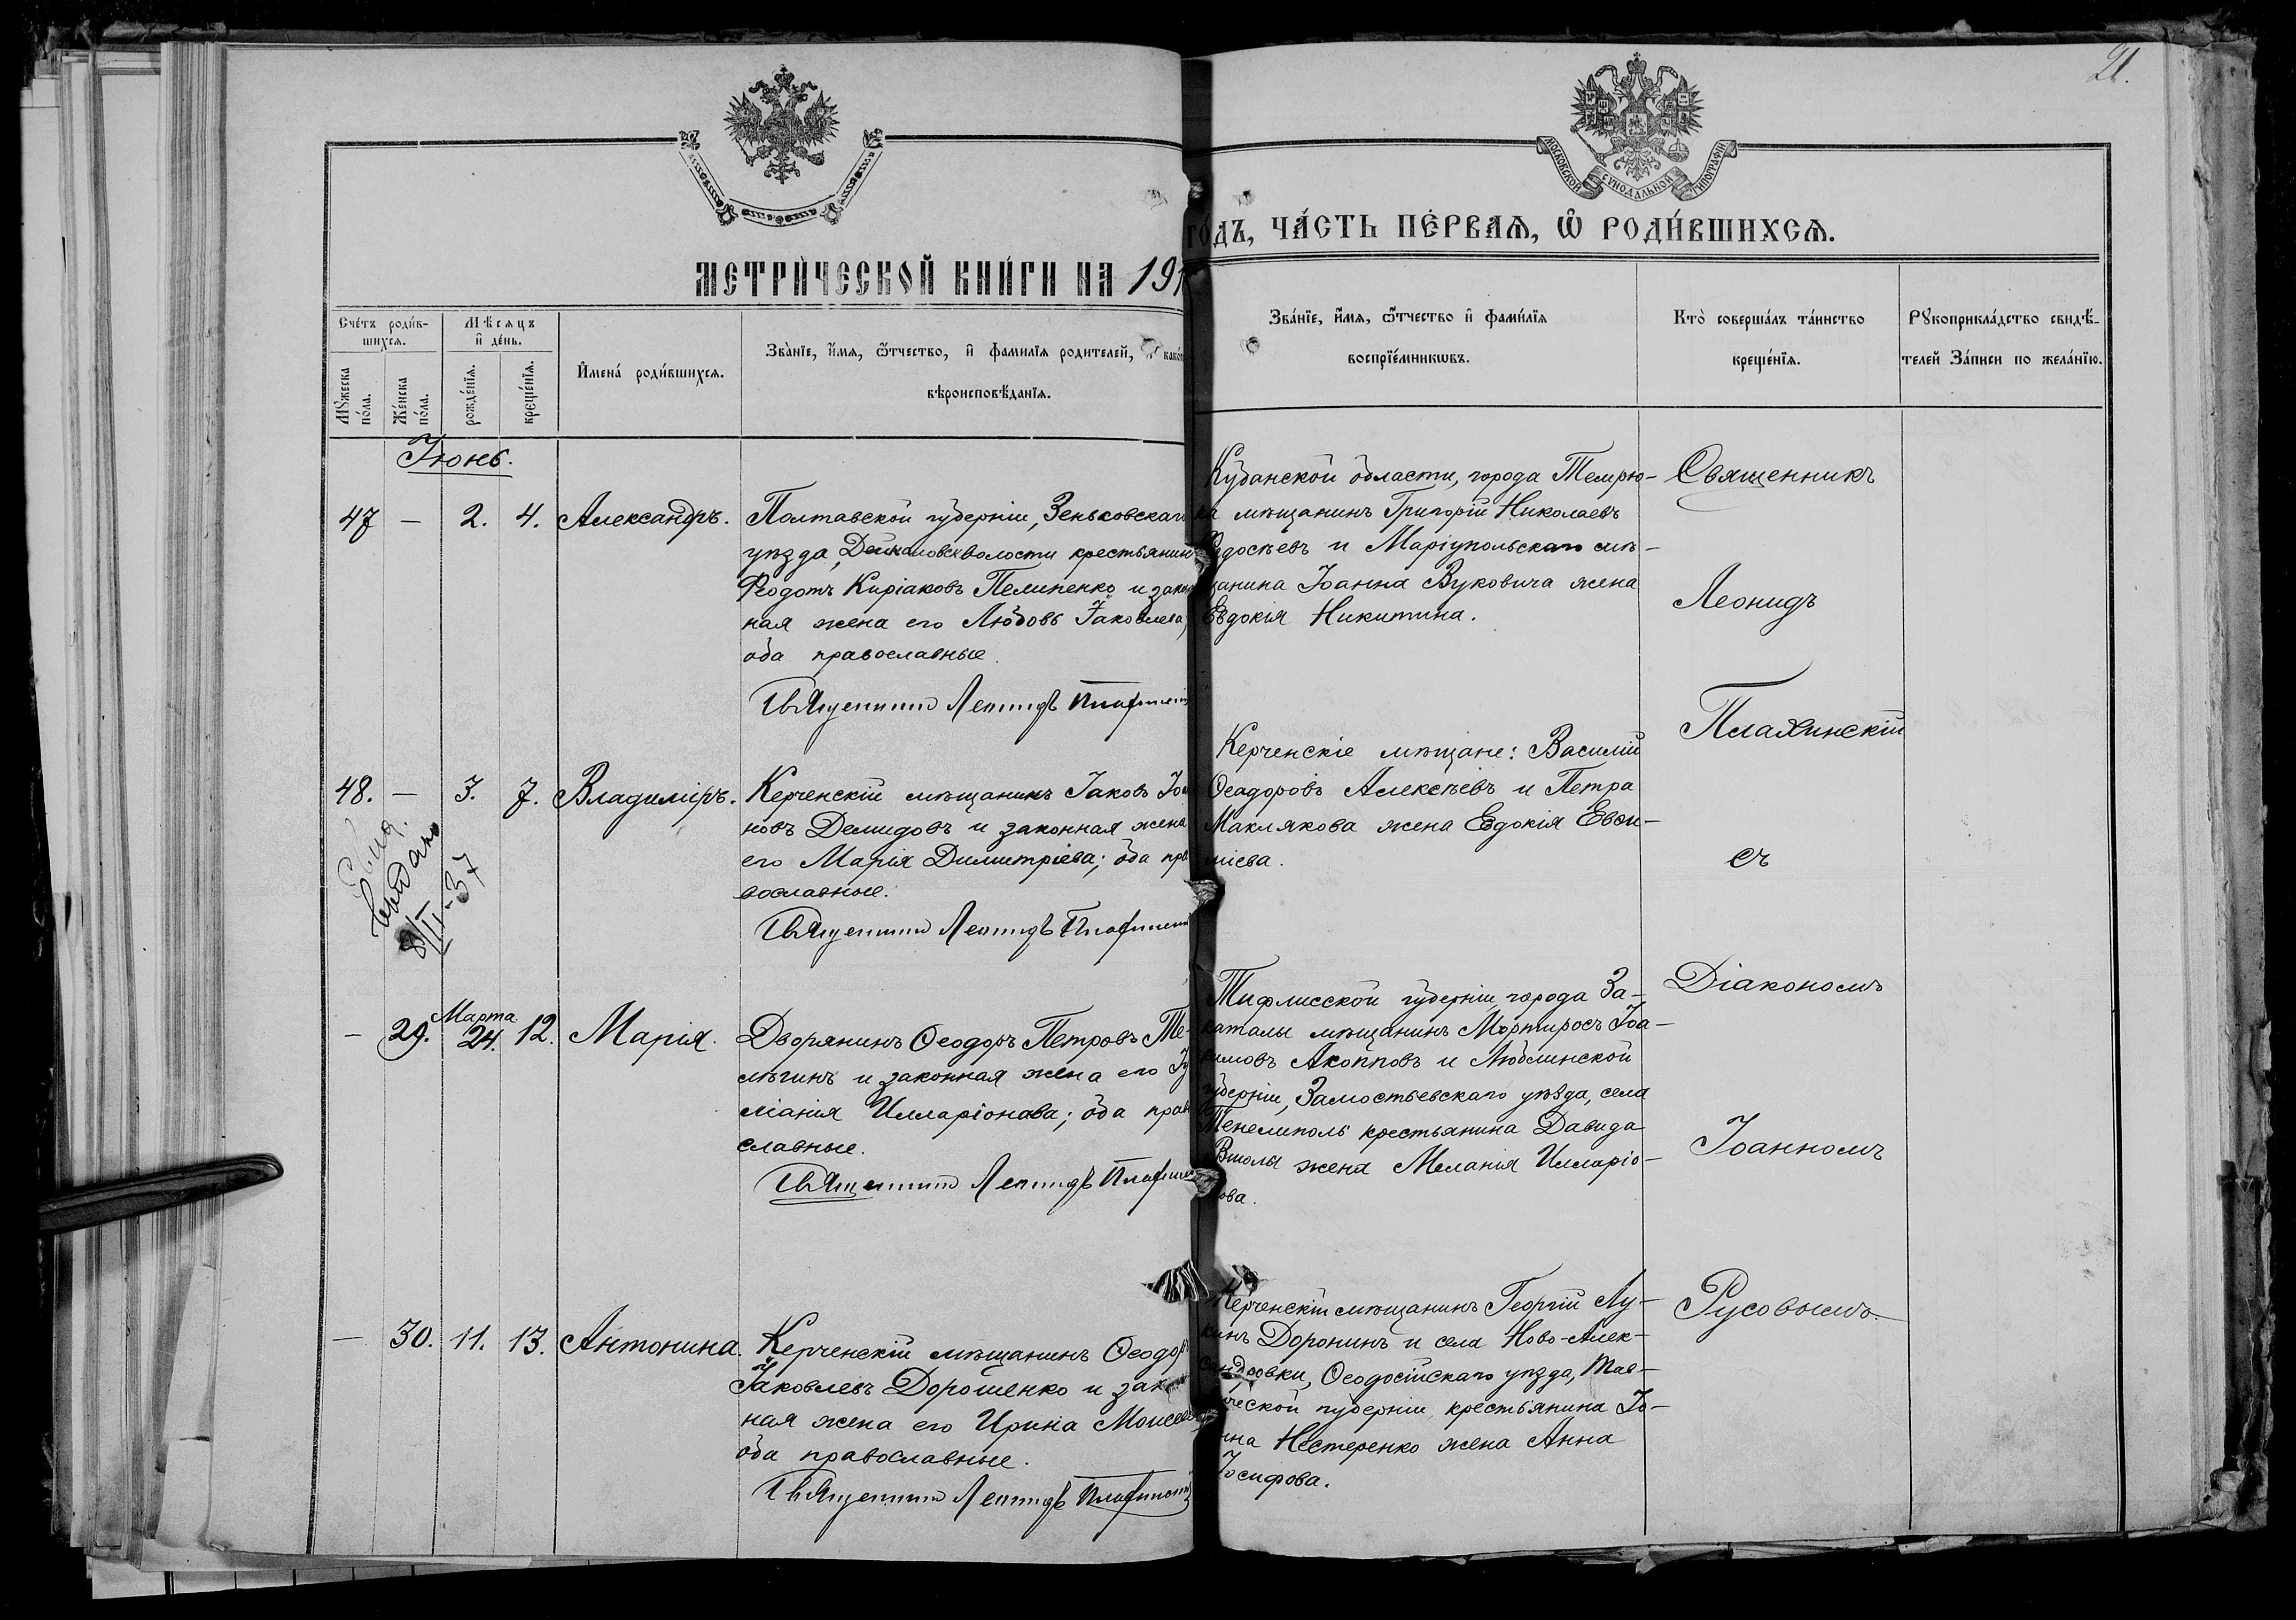 21.
МОСКОВСКОЙ СѴНОДАЛЬНОЙ ТИПОГРАФІИ
МЕТРИ́ЧЕСКОЙ КНИ́ГИ НА 191
ГО́ДЪ, ЧА́СТЬ ПЕ́РВАѦ, Ѡ҆ РОДИ́ВШИХСѦ.
Сче́тъ роди́в-
шихсѧ.
Мꙋ́жеска по́ла.
Же́нска по́ла.
Мѣ́сѧцъ
и҆ де́нь.
рожде́нїѧ.
креще́нїѧ.
И҆мена̀ роди́вшихсѧ.
Зва́нїе, и҆́мѧ, ѻ҆́тчество, и҆ фамилїѧ родителей, и҆ како́
вѣроисповѣ́данїѧ.
Зва́нїе, и҆́мѧ, ѻ҆́тчество и҆ фами́лїѧ
воспрїе́мникѡвъ.
Кто̀ соверша́лъ та́инство
креще́нїѧ.
Рꙋкоприкла́дство свидѣ́-
телей За́писи по жела́нїю.
Іюнь.
47 — 2. 4. Александръ.
Полтавской губерніи, Зеньковскаго
уѣзда, волости крестьянин
Ѳеодотъ Киріаковъ Пелипенко и закон
ная жена его Любовь Іаковлева,
оба православные.
Священникъ Леонидъ Плахинскі
Кубанской области, города Темрю-
ка мѣщанинъ Григорій Николаевъ
Ѳдосѣевъ и Маріупольскаго мѣ-
щанина Іоанна Вуковича жена
Евдокія Никитина.
Священникъ
Леонидъ
Плахинскій
48. — 3. 7. Владиміръ.
выдано
8/II-37
Керченскій мѣщанинъ Іаковъ Іоан
новъ Демидовъ и законная жена
его Марія Димитріева; оба пра
вославные.
Священникъ Леонидъ Плахинскі
Керченскіе мѣщане: Василій
Ѳеодоровъ Алексѣевъ и Петра
Маклякова жена Евдокія Евѳи-
міева.
съ
— 29. Марта 24. 12. Марія.
Дворянинъ Ѳеодоръ Петровъ Те-
лѣгинъ и законная жена его Іу
ліанія Илларіонова; оба право
славные.
Священникъ Леонидъ Плахинс
Тифлисской губерніи, города За-
каталы мѣщанинъ Мартиросъ Іоа-
кимовъ Акопповъ и Люблинской
губерніи, Замостьевскаго уѣзда, села
крестьянина Давида
жена Меланія Илларіо-
нова.
Діакономъ
Іоанномъ
— 30. 11. 13. Антонина.
Керченскій мѣщанинъ Ѳеодоръ
Іаковлевъ Дорошенко и закон
ная жена его Ирина Моисеева
оба православные.
Священникъ Леонидъ Плахинскій
Керченскій мѣщанинъ Георгій Лу-
кинъ Доронинъ и села Ново-Алек-
сандровки, Ѳеодосійскаго уѣзда, Тав-
рической губерніи крестьянина Іо-
анна Нестеренко жена Анна
Іосифова.
Русовымъ.